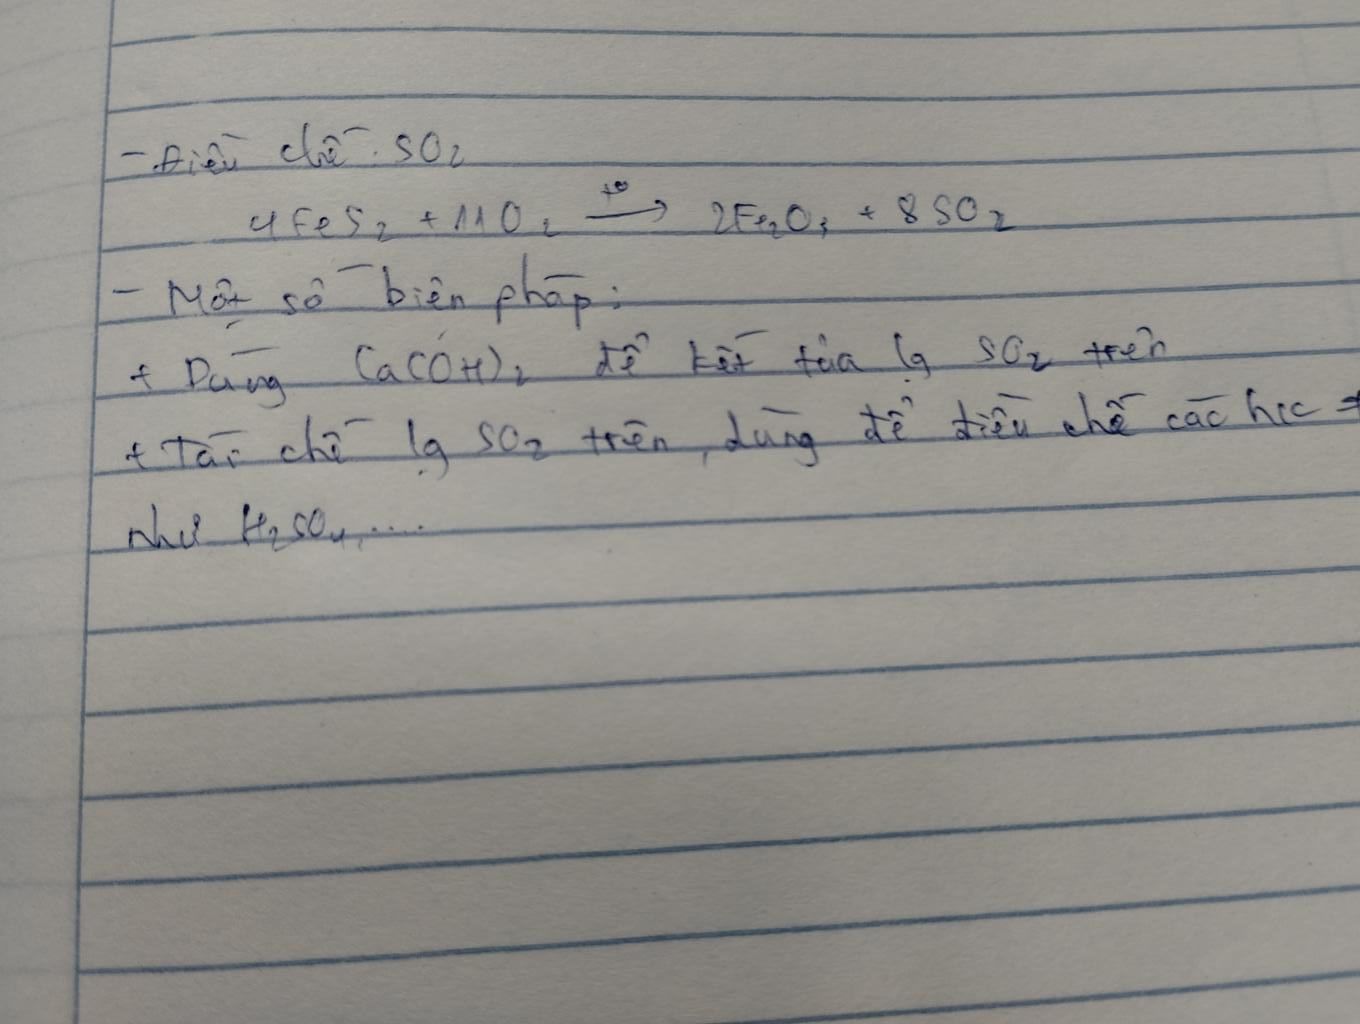 - Điều chế SO₂
4FeS₂ + 11O₂ —t°→ 2Fe₂O₃ + 8SO₂
- Một số biện pháp:
+ Dùng Ca(OH)₂ để kết tủa lg SO₂ trên
+ Tái chế lg SO₂ trên, dùng để điều chế các
như H₂SO₄,....